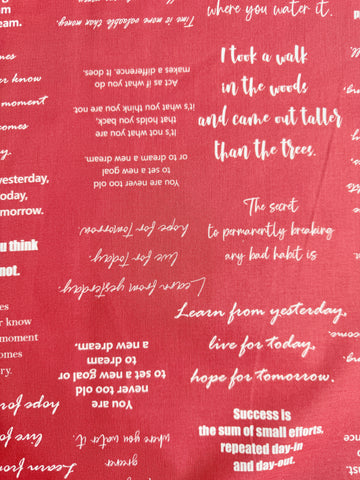 where you water it.
Time is more valuable than money.
I took a walk
in the woods
and came out taller
than the trees.
Act as if what you do
makes a difference. It does.
It's not what you are
that holds you back,
it's what you think you are not.
You are never too old
to set a goal
or to dream a new dream.
The secret
to permanently breaking
any bad habit is
Learn from yesterday,
live for today,
hope for tomorrow.
Learn from yesterday,
live for today,
hope for tomorrow.
You are
never too old
to set a new goal or
to dream
a new dream.
Success is
the sum of small efforts,
repeated day-in
and day-out.
greener
where you water it.
dream.
know
moment
comes
yesterday,
today,
tomorrow.
you think
not.
know
moment
comes
hope for
live for
Learn from